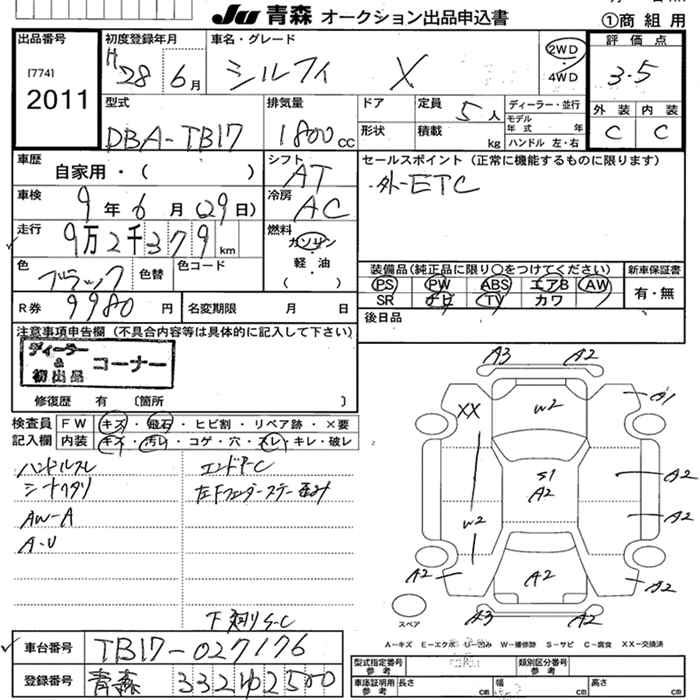 JU 青森 オークション出品申込書
①商組用
出品番号
[774]
2011
初度登録年月
H28 6月
車名・グレード
シルフィ X
2WD
・
4WD
評価点
3.5
外装 内装
C C
型式
DBA-TB17
排気量
1800cc
ドア
形状
定員 5人
積載 kg
ディーラー・並行
モデル年式 年
ハンドル 左・右
車歴
自家用・( )
シフト
AT
セールスポイント (正常に機能するものに限ります)
・外-ETC
車検
9年6月(29日)
冷房
AC
走行
9万2千379km
燃料
ガソリン
・
軽・油
( ・ )
色
ブラック
色替
色コード
装備品(純正品に限り○をつけてください)
PS PW ABS エアB AW
SR ナビ TV カワ
新車保証書
有・無
R券 9980円
名変期限 月 日
後日品
注意事項申告欄 (不具合内容等は具体的に記入して下さい)
ディーラー
&
初出品
コーナー
修復歴 有 〔箇所 〕
検査員
記入欄
FW キズ・飛石・ヒビ割・リペア跡・×要
内装 キズ・汚レ・コゲ・穴・スレ・キレ・破レ
ハンドルスレ
シートヘタリ
AW-A
A-U
エンドP-C
左Fフェンダーステー歪み
下廻りS-C
A3 A2
XX W2 A1
S1
A2
A2
A2
W2
A2 A2 A2
A3 A2
スペア
A-キズ E-エクボ U-凹み W-補修跡 S-サビ C-腐食 XX-交換済
車台番号
TB17-027176
登録番号
青森 332ゆ2500
型式指定番号
参考
類別区分番号
参考
車庫証明用
参考
長さ cm 幅 cm 高さ cm